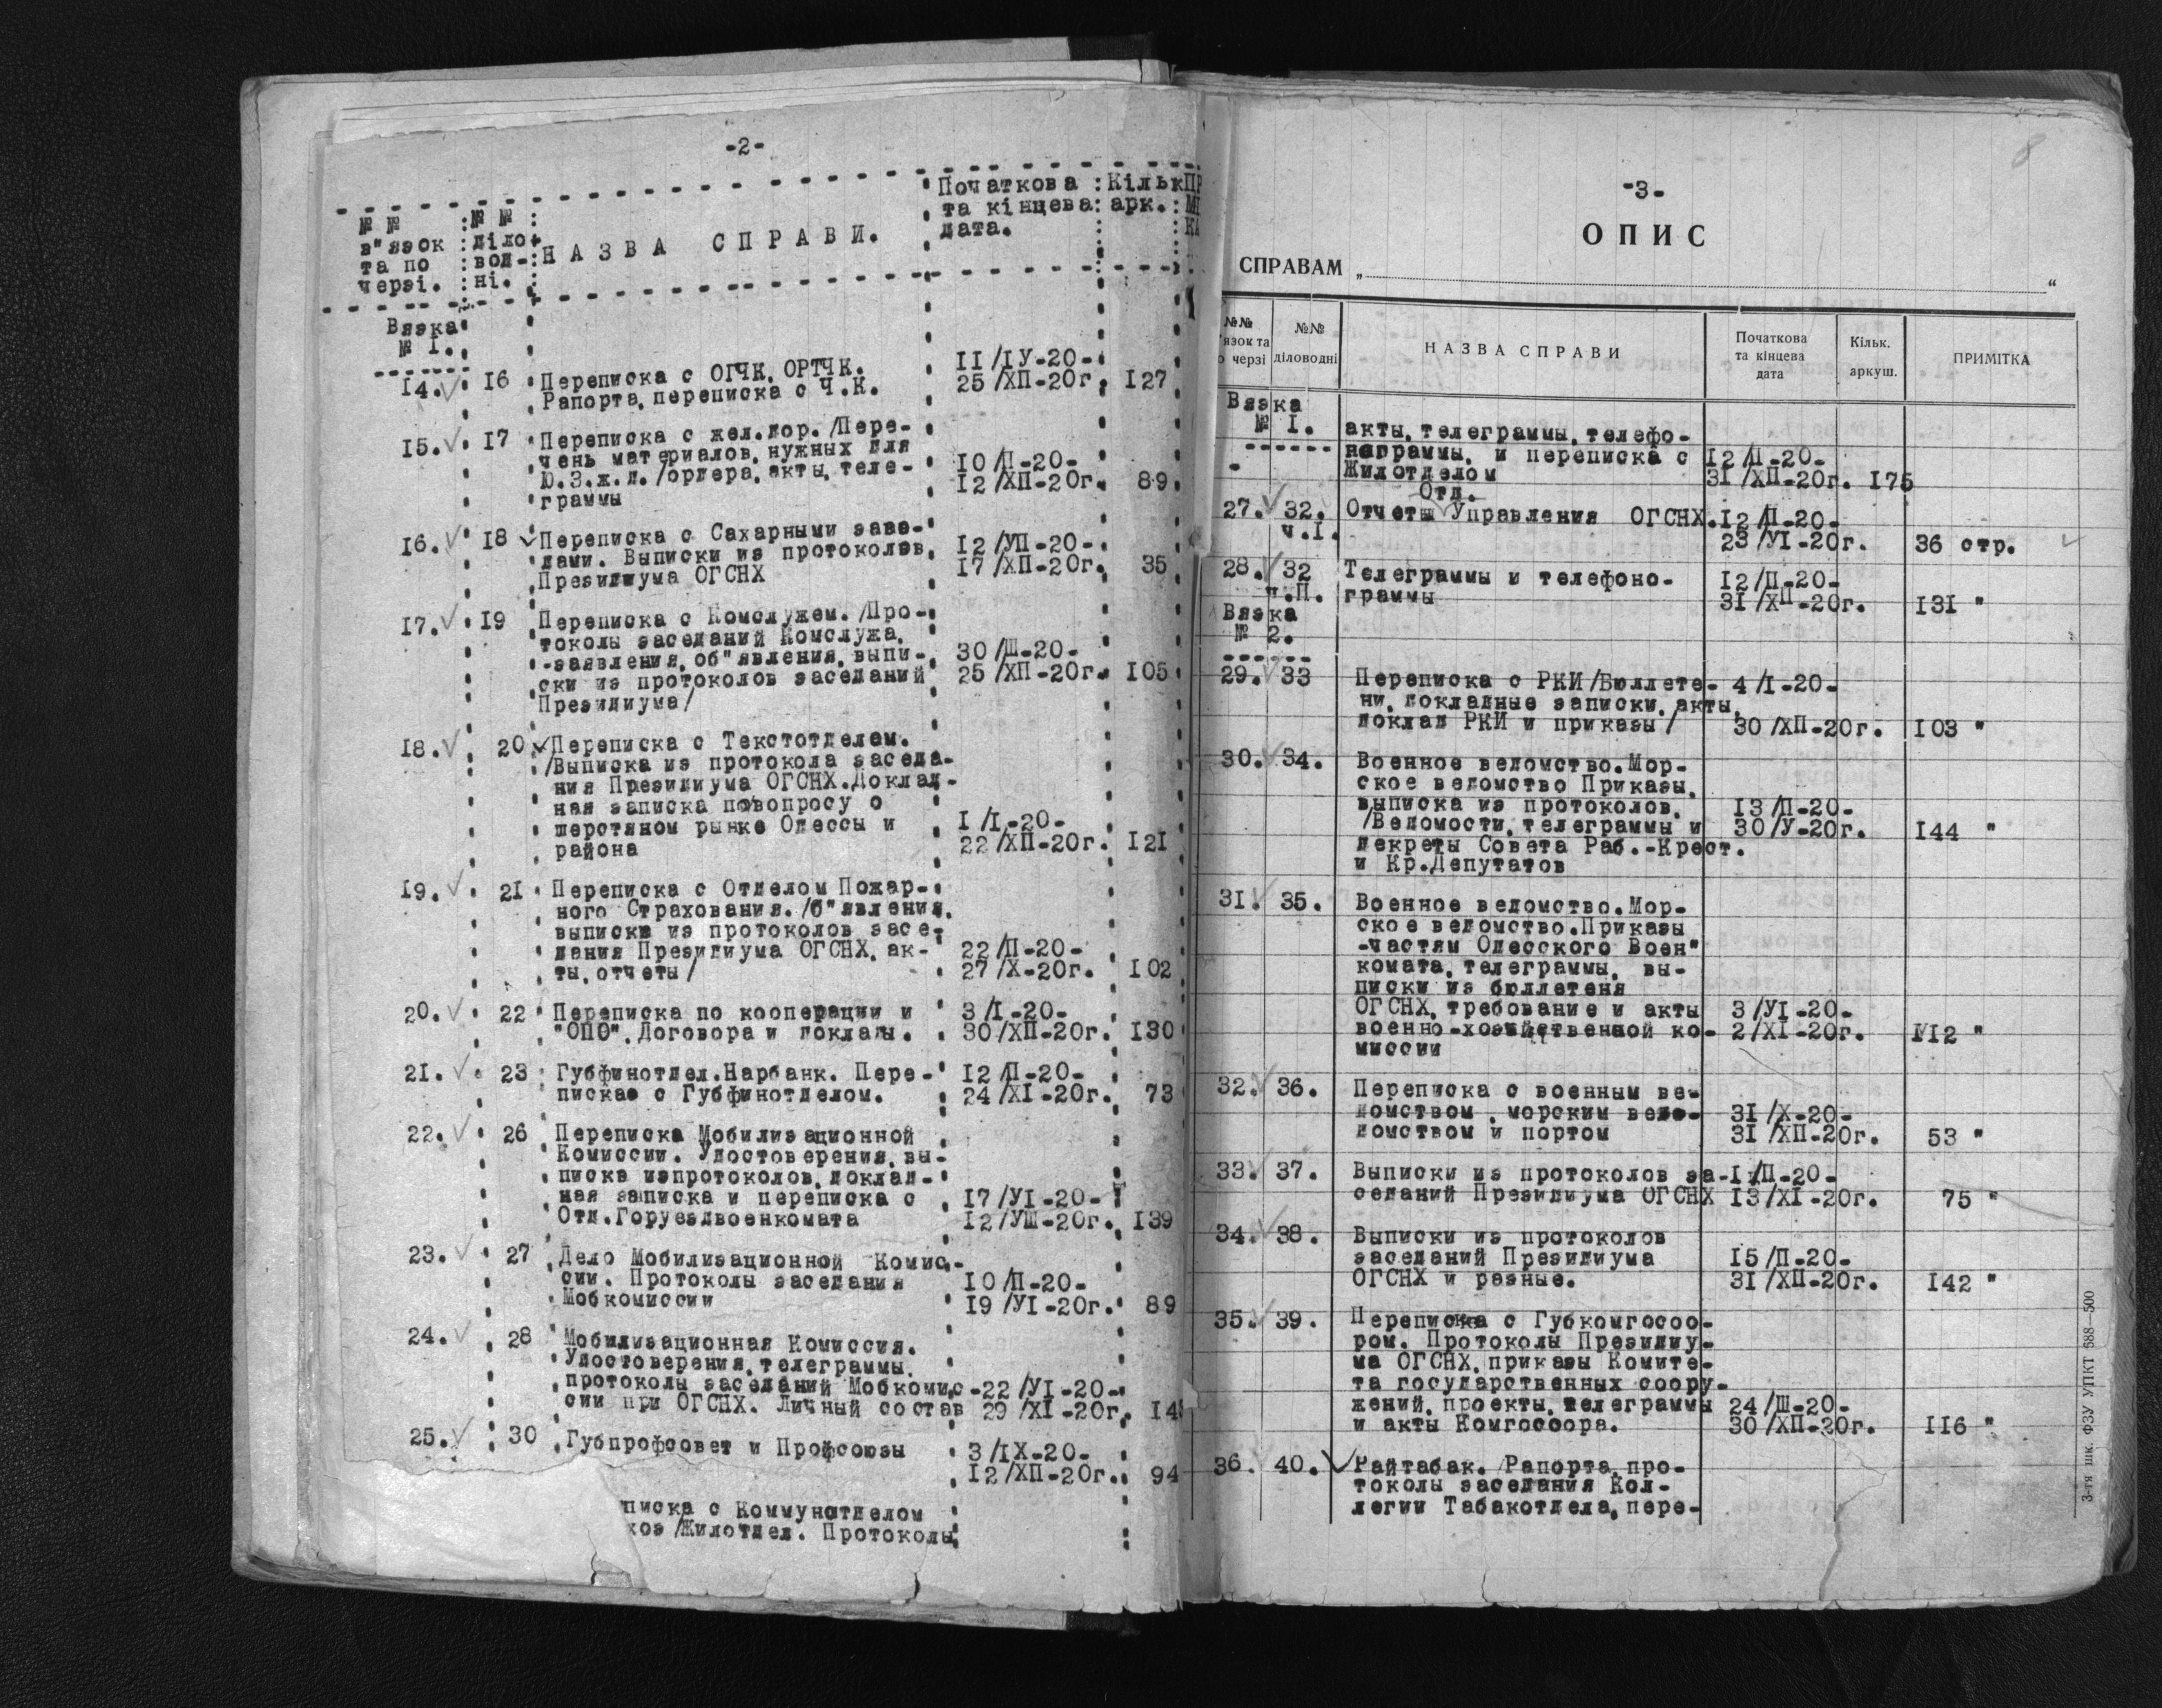 -2-
№ № в"язок та по черзі. : № № діловод-ні. : НАЗВА СПРАВИ. Початкова та кінцева дата. : Кільк арк. : ПР
Вязка
№ I.
14. 16 Переписка с ОГЧК, ОРТЧК. II/IУ-20-
Рапорта, переписка с Ч.К. 25/ХП-20г. 127
15. 17 Переписка с жел.дор. /Пере-
чень материалов, нужных для
Ю.З.ж.д./ордера, акты, теле- 10/П-20-
граммы 12/ХП-20г. 89.
16. 18 Переписка с Сахарными заво-
дами. Выписки из протоколов 12/УП-20-
Президиума ОГСНХ 17/ХП-20г. 35
17. 19 Переписка с Комслужем. /Про-
токолы заседаний Комслужа,
-заявления, об"явления, выпи- 30/Ш-20-
ски из протоколов заседаний 25/ХП-20г. 105
Президиума/
18. 20 Переписка с Текстотделем.
/Выписка из протокола заседа-
ния Президиума ОГСНХ. Доклад-
ная записка повопросу о
шерстяном рынке Одессы и I/I-20-
района 22/ХП-20г. 121
19. 21 Переписка с Отделом Пожар-
ного Страхования. /б"явления,
выписки из протоколов засе-
дания Президиума ОГСНХ, ак- 22/П-20-
ты, отчеты/ 27/Х-20г. 102
20. 22 Переписка по кооперации и 3/I-20-
"ОПО". Договора и доклады. 30/ХП-20г. 130
21. 23 Губфинотдел. Нарбанк. Пере- 12/П-20-
писка с Губфинотделом. 24/ХI-20г. 73
22. 26 Переписка Мобилизационной
Комиссии. Удостоверения, вы-
писка изпротоколов, доклад-
ная записка и переписка с 17/УI-20-
Отд. Горуездвоенкомата 12/УШ-20г. 139
23. 27 Дело Мобилизационной Комис-
сии. Протоколы заседания 10/П-20-
Мобкомиссии 19/УI-20г. 89
24. 28 Мобилизационная Комиссия.
Удостоверения, телеграммы,
протоколы заседаний Мобкомис- 22/УI-20-
сии при ОГСНХ. Личный состав 29/ХI-20г. 14
25. 30 Губпрофсовет и Профсоюзы 3/IХ-20-
12/ХП-20г. 94
писка с Коммунотделом
хоз/Жилотдел. Протоколы
8
-3-
ОПИС
СПРАВАМ „ “
№№ язок та о черзі №№ діловодні НАЗВА СПРАВИ Початкова та кінцева дата Кільк. аркуш. ПРИМІТКА
Вязка
№ I. акты, телеграммы, телефо-
нограммы, и переписка с 12/П-20-
Жилотделом 31/ХП-20г. 175
Отд.
27. 32. Отчеты Управления ОГСНХ. 12/П-20-
ч.I. 23/УI-20г. 36 стр.
28. 32 Телеграммы и телефоно- 12/П-20-
ч.П. граммы 31/ХП-20г. 131 "
Вязка
№ 2.
29. 33 Переписка с РКИ/Бюллете- 4/I-20-
ни, докладные записки, акты,
доклад РКИ и приказы/ 30/ХП-20г. 103 "
30. 34. Военное ведомство. Мор-
ское ведомство Приказы,
выписка из протоколов. 13/П-20-
/Ведомости, телеграммы и 30/У-20г. 144 "
декреты Совета Раб.-Крест.
и Кр.Депутатов
31. 35. Военное ведомство. Мор-
ское ведомство. Приказы
-частям Одесского Воен"
комата, телеграммы, вы-
писки из бюллетеня
ОГСНХ, требование и акты 3/УI-20-
военно-хозяйственной ко- 2/ХI-20г. 112 "
миссии
32. 36. Переписка с военным ве-
домством, морским ведо- 31/Х-20-
домством и портом 31/ХП-20г. 53 "
33. 37. Выписки из протоколов за- I/П-20-
седаний Президиума ОГСНХ 13/ХI-20г. 75 "
34. 38. Выписки из протоколов
заседаний Президиума 15/П-20-
ОГСНХ и разные. 31/ХП-20г. 142 "
35. 39. Переписка с Губкомгосоо-
ром. Протоколы Президиу-
ма ОГСНХ, приказы Комите-
та государственных соору-
жений, проекты, телеграммы 24/Ш-20-
и акты Комгосоора. 30/ХП-20г. 116 "
36. 40. Райтабак. /Рапорта, про-
токолы заседания Кол-
легии Табакотдела, пере-
3-тя шк. ФЗУ УПКТ 688—500